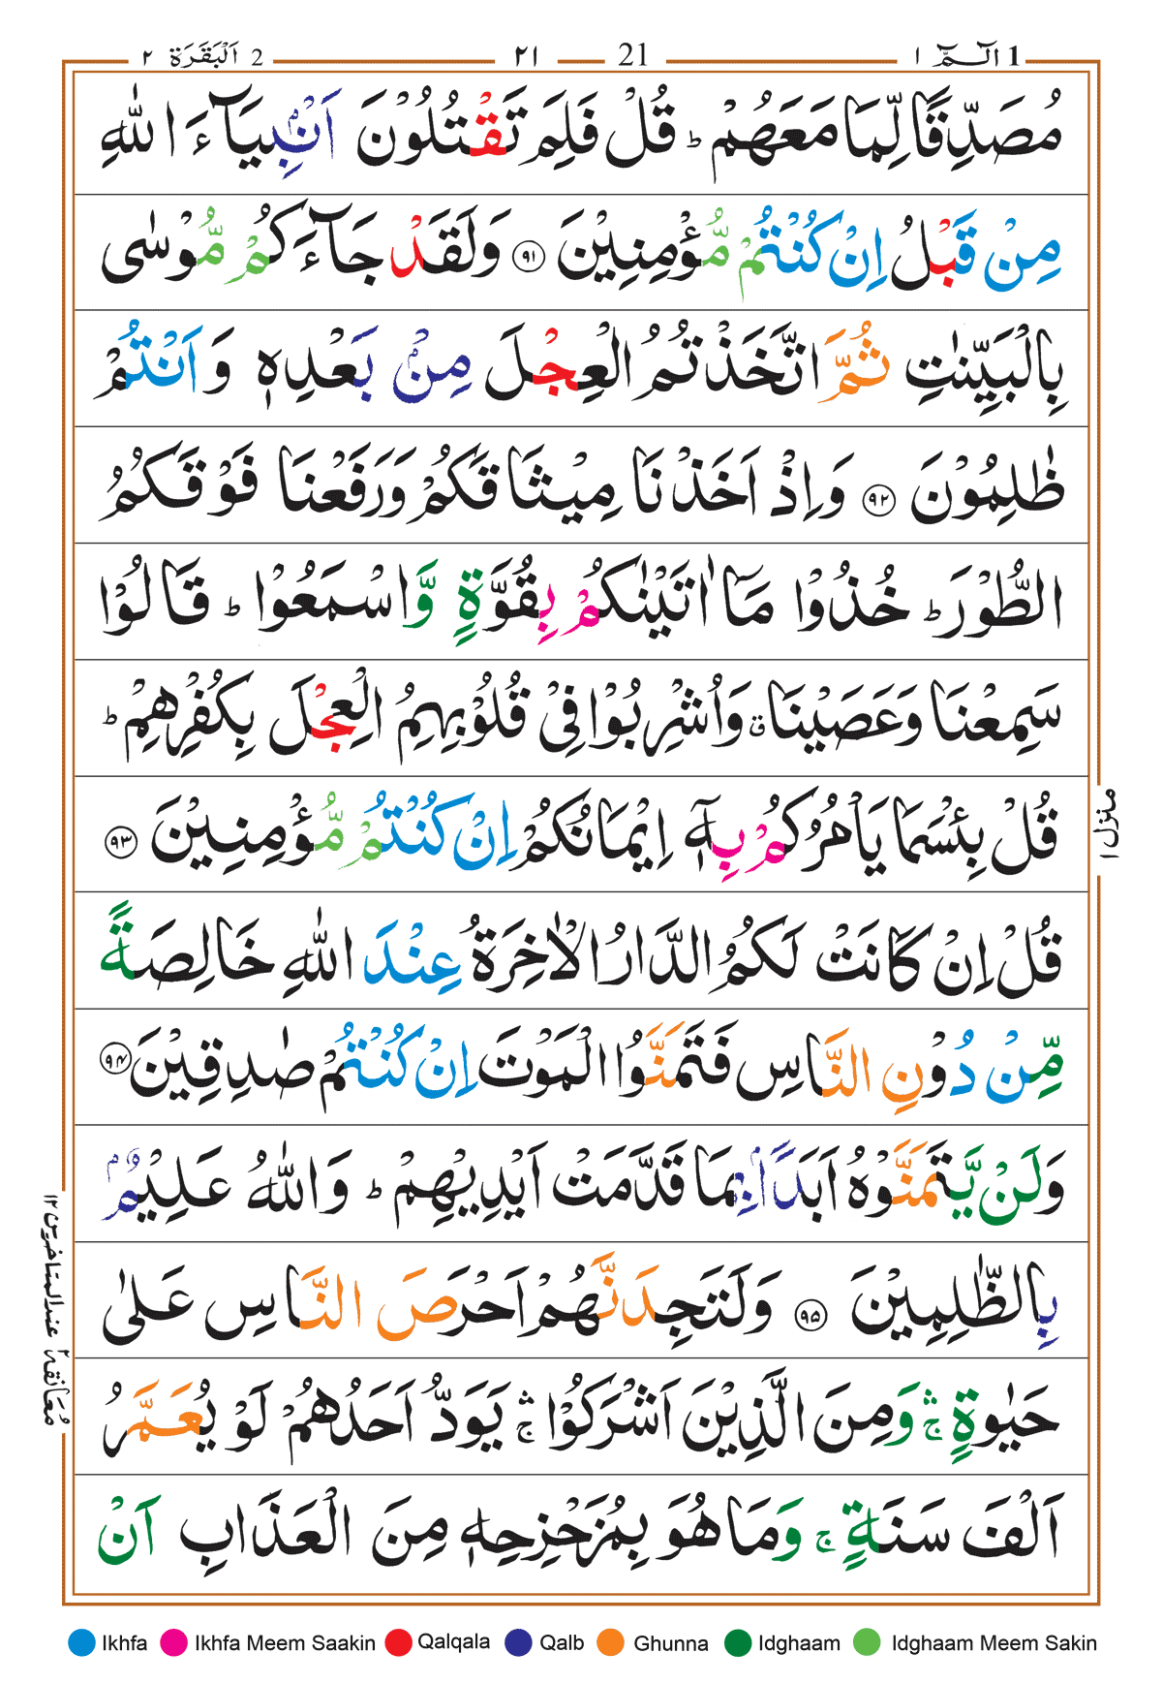 1 الٓـمّٓ ١
21 ٢١
2 اَلْبَقَرَة ٢
مُصَدِّقًا لِّمَا مَعَهُمْ ؕ قُلْ فَلِمَ تَقْتُلُوْنَ اَنْۢبِيَآءَ اللّٰهِ
مِنْ قَبْلُ اِنْ كُنْتُمْ مُّؤْمِنِيْنَ ﴿۹۱﴾ وَلَقَدْ جَآءَكُمْ مُّوْسٰى
بِالْبَيِّنٰتِ ثُمَّ اتَّخَذْتُمُ الْعِجْلَ مِنْۢ بَعْدِهٖ وَاَنْتُمْ
ظٰلِمُوْنَ ﴿۹۲﴾ وَاِذْ اَخَذْنَا مِيْثَاقَكُمْ وَرَفَعْنَا فَوْقَكُمُ
الطُّوْرَ ؕ خُذُوْا مَآ اٰتَيْنٰكُمْ بِقُوَّةٍ وَّاسْمَعُوْا ؕ قَالُوْا
سَمِعْنَا وَعَصَيْنَا ۗ وَاُشْرِبُوْا فِىْ قُلُوْبِهِمُ الْعِجْلَ بِكُفْرِهِمْ ؕ
قُلْ بِئْسَمَا يَاْمُرُكُمْ بِهٖٓ اِيْمَانُكُمْ اِنْ كُنْتُمْ مُّؤْمِنِيْنَ ﴿۹۳﴾
قُلْ اِنْ كَانَتْ لَكُمُ الدَّارُ الْاٰخِرَةُ عِنْدَ اللّٰهِ خَالِصَةً
مِّنْ دُوْنِ النَّاسِ فَتَمَنَّوُا الْمَوْتَ اِنْ كُنْتُمْ صٰدِقِيْنَ ﴿۹۴﴾
وَلَنْ يَّتَمَنَّوْهُ اَبَدًۢا بِمَا قَدَّمَتْ اَيْدِيْهِمْ ؕ وَاللّٰهُ عَلِيْمٌۢ
بِالظّٰلِمِيْنَ ﴿۹۵﴾ وَلَتَجِدَنَّهُمْ اَحْرَصَ النَّاسِ عَلٰى
حَيٰوةٍ ۛۚ وَمِنَ الَّذِيْنَ اَشْرَكُوْا ۛۚ يَوَدُّ اَحَدُهُمْ لَوْ يُعَمَّرُ
اَلْفَ سَنَةٍ ۚ وَمَا هُوَ بِمُزَحْزِحِهٖ مِنَ الْعَذَابِ اَنْ
منزل ١
مُعَانقة ٢ عند المتاخرين ١٢
Ikhfa Ikhfa Meem Saakin Qalqala Qalb Ghunna Idghaam Idghaam Meem Sakin